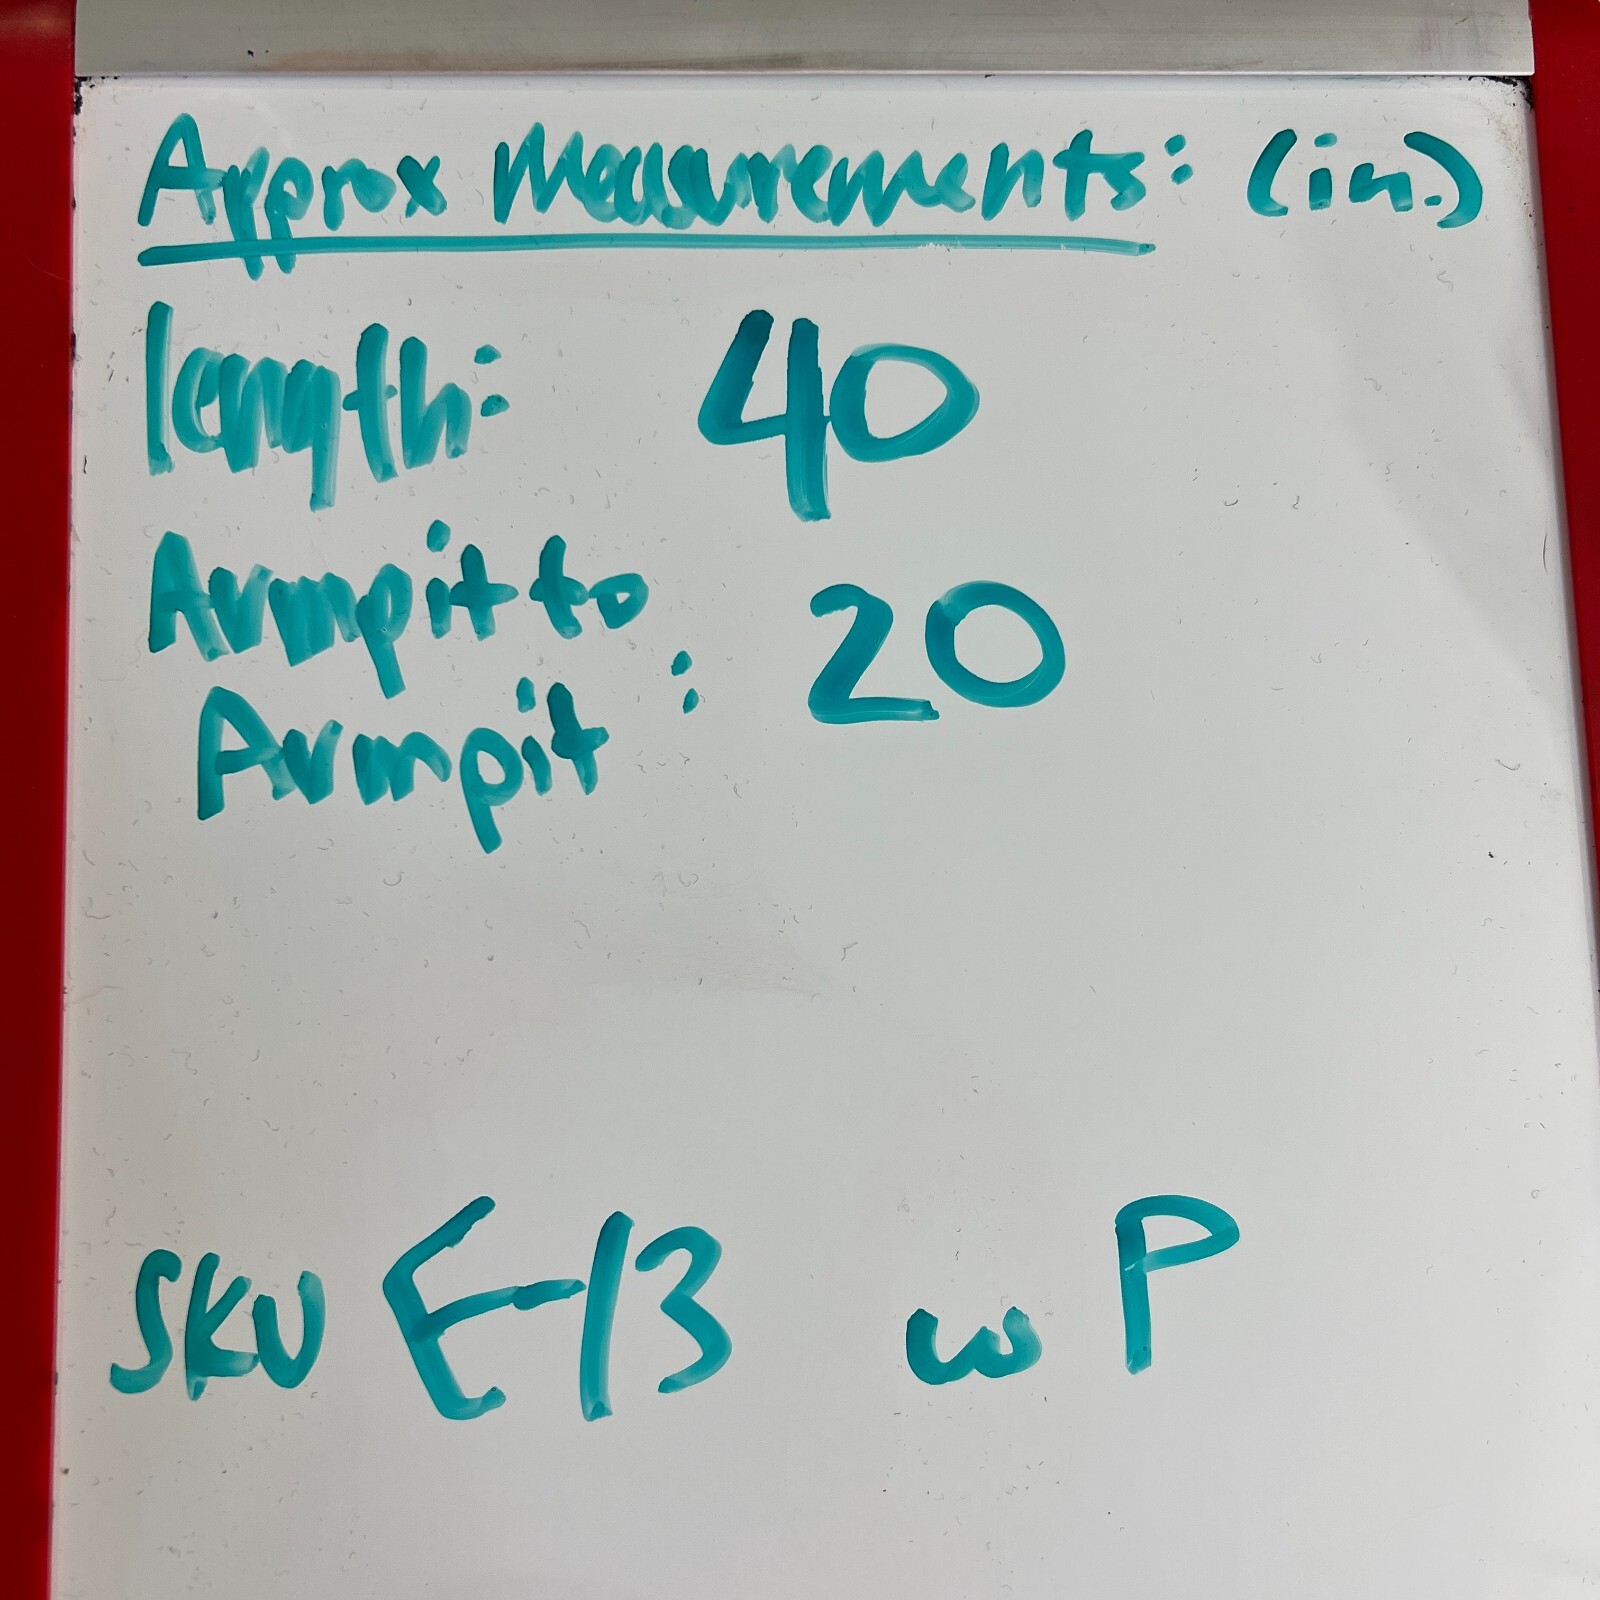 Approx Measurements: (in.)
length: 40
Armpit to
Armpit : 20
SKU E13 w P